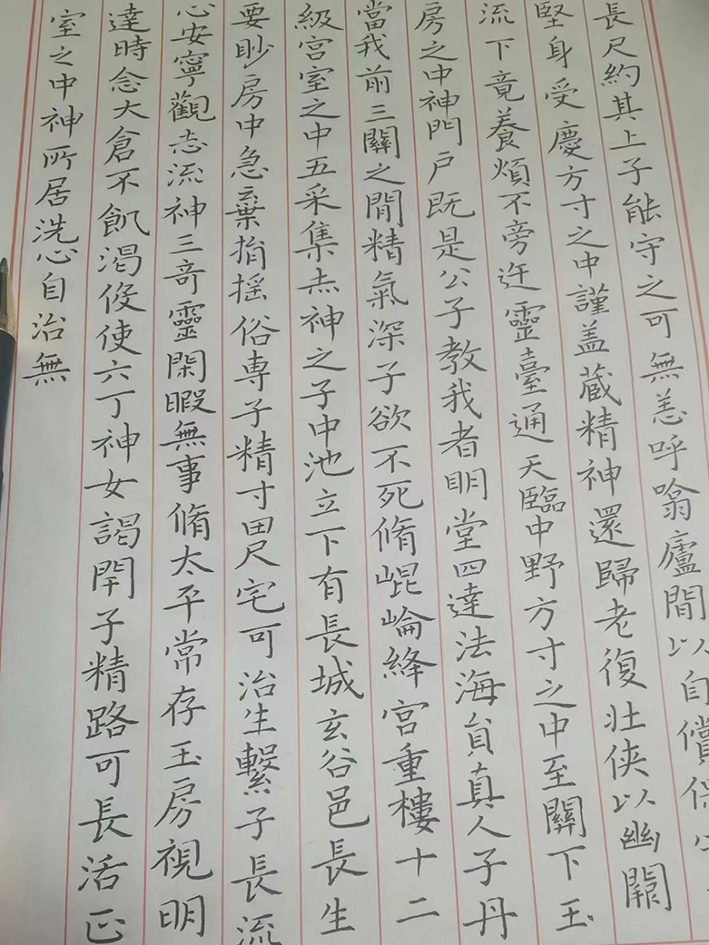 長尺約其上子能守之可無恙呼噏廬間以自償保
堅身受慶方寸之中謹盖藏精神還歸老復壯侠以幽闕
流下竟養煩不旁迕靈臺通天臨中野方寸之中至關下玉
房之中神門戶既是公子教我者眀堂四達法海貟真人子丹
當我前三關之間精氣深子欲不死脩崐崘絳宮重樓十二
級宮室之中五采集赤神之子中池立下有長城玄谷邑長生
要眇房中急棄捐搖俗専子精寸田尺宅可治生繫子長流
心安寧觀志流神三奇靈閑暇無事脩太平常存玉房視明
達時念大倉不飢渴役使六丁神女謁閈子精路可長活正
室之中神所居洗心自治無